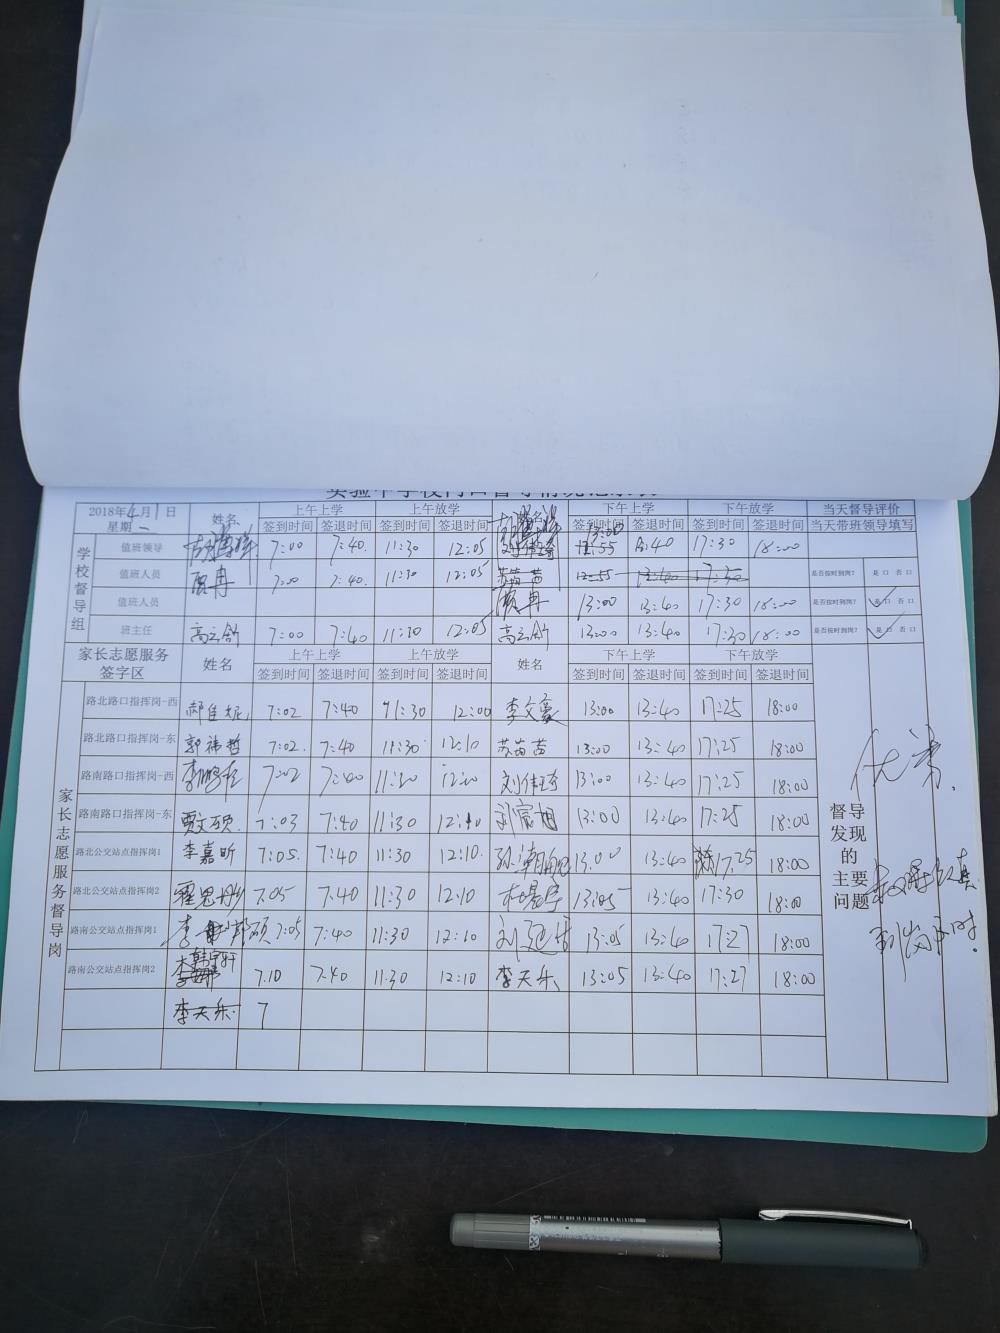 2018年4月1日 姓名 上午上学 上午放学 姓名 下午上学 下午放学 当天督导评价
星期一 签到时间 签退时间 签到时间 签退时间 签到时间 签退时间 签到时间 签退时间 当天带班领导填写
学校督导组
值班领导 7:00 7:40. 11:30 12:05 13:00 12:55 17:30 18:00
值班人员 7:00 7:40. 11:30 12:05 苏苗苗 12:55 13:40 17:30 是否按时到岗? 是 口 否 口
值班人员 13:00 13:40 17:30 18:00 是否按时到岗? 是 口 否 口
班主任 高云舒 7:00 7:40 11:30 12:05 高云舒 13:00 13:40 17:30 18:00 是否按时到岗? 是 口 否 口
家长志愿服务签字区 姓名 上午上学 上午放学 姓名 下午上学 下午放学
签到时间 签退时间 签到时间 签退时间 签到时间 签退时间 签到时间 签退时间
家长志愿服务督导岗
路北路口指挥岗-西 7:02 7:40 11:30 12:00 李文豪 13:00 13:40 17:25 18:00
路北路口指挥岗-东 郭祎哲 7:02. 7:40 11:30 12:10 苏苗苗 13:00 13:40 17:25 18:00
路南路口指挥岗-西 7:02 7:40 11:30 刘伟琦 13:00 13:40 17:25 18:00
路南路口指挥岗-东 贾文硕. 7:03 7:40 11:30 12:10 13:00 13:40 17:25 18:00
路北公交站点指挥岗1 李嘉昕 7:05. 7:40 11:30 12:10. 13.00 13:40 17.25 18:00
路北公交站点指挥岗2 霍思彤 7.05 7.40 11:30 12:10 杜晏宇 13:05 13:40 17:30 18:00
路南公交站点指挥岗1 7:05 7:40 11:30 12:10 13:05 13:40 17:27 18:00
路南公交站点指挥岗2 韩宇轩 7.10 7.40 11:30 12:10 李天乐 13:05 13:40 17:27 18:00
李天乐 7
督导发现的主要问题
优秀.
到岗及时.